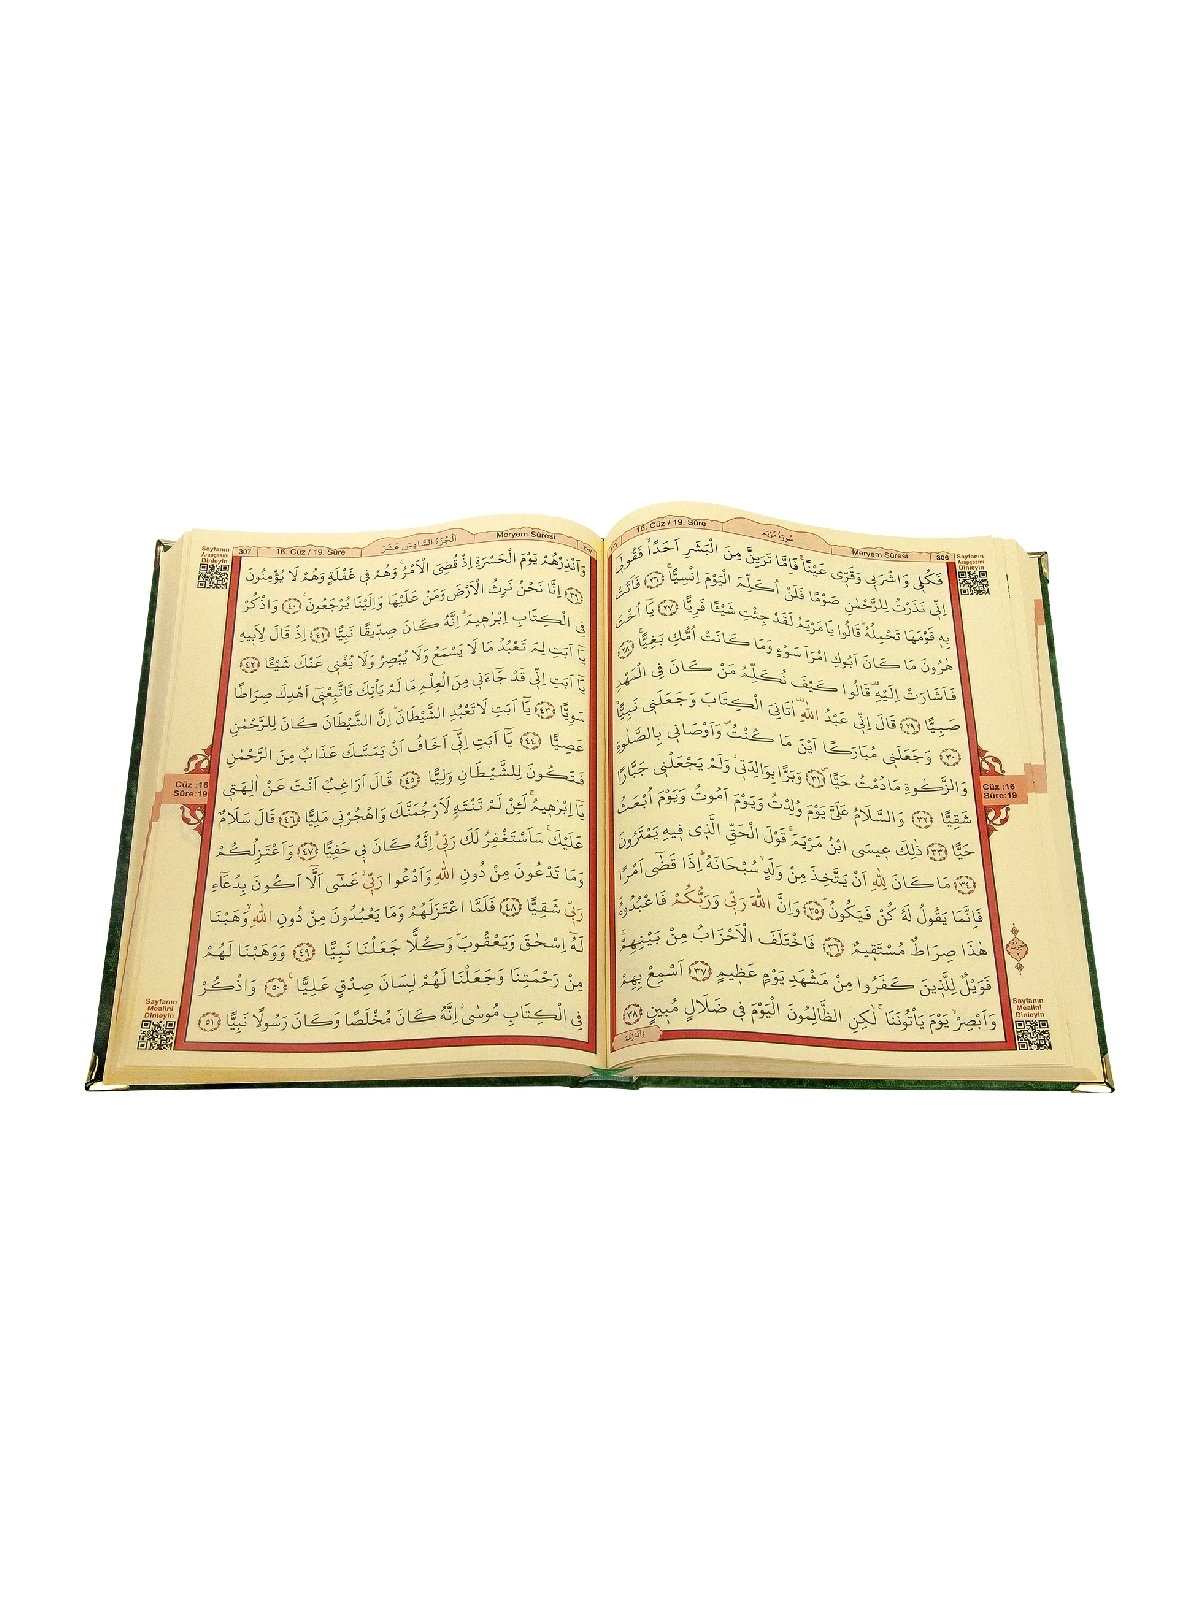 16. Cüz / 19. Sûre
سورة مريم
Meryem Sûresi
306
Sayfanın
Arapçasını
Dinleyin
فَكُل۪ي وَاشْرَب۪ي وَقَرّ۪ي عَيْنًاۚ فَاِمَّا تَرَيِنَّ مِنَ الْبَشَرِ اَحَدًاۙ فَقُول۪ٓي
اِنّ۪ي نَذَرْتُ لِلرَّحْمٰنِ صَوْمًا فَلَنْ اُكَلِّمَ الْيَوْمَ اِنْسِيًّاۚ ﴿٢٦﴾ فَاَتَتْ
بِه۪ قَوْمَهَا تَحْمِلُهُۜ قَالُوا يَا مَرْيَمُ لَقَدْ جِئْتِ شَيْـًٔا فَرِيًّا ﴿٢٧﴾ يَٓا اُخْتَ
هٰرُونَ مَا كَانَ اَبُوكِ امْرَاَ سَوْءٍ وَمَا كَانَتْ اُمُّكِ بَغِيًّاۚ ﴿٢٨﴾
فَاَشَارَتْ اِلَيْهِۜ قَالُوا كَيْفَ نُكَلِّمُ مَنْ كَانَ فِي الْمَهْدِ
صَبِيًّا ﴿٢٩﴾ قَالَ اِنّ۪ي عَبْدُ اللّٰهِۜ اٰتَانِيَ الْكِتَابَ وَجَعَلَن۪ي نَبِيًّاۙ
﴿٣٠﴾ وَجَعَلَن۪ي مُبَارَكًا اَيْنَ مَا كُنْتُۖ وَاَوْصَان۪ي بِالصَّلٰوةِ
وَالزَّكٰوةِ مَا دُمْتُ حَيًّاۖ ﴿٣١﴾ وَبَرًّا بِوَالِدَت۪يۘ وَلَمْ يَجْعَلْن۪ي جَبَّارًا
شَقِيًّا ﴿٣٢﴾ وَالسَّلَامُ عَلَيَّ يَوْمَ وُلِدْتُ وَيَوْمَ اَمُوتُ وَيَوْمَ اُبْعَثُ
حَيًّا ﴿٣٣﴾ ذٰلِكَ ع۪يسَى ابْنُ مَرْيَمَۚ قَوْلَ الْحَقِّ الَّذ۪ي ف۪يهِ يَمْتَرُونَ
﴿٣٤﴾ مَا كَانَ لِلّٰهِ اَنْ يَتَّخِذَ مِنْ وَلَدٍۙ سُبْحَانَهُۜ اِذَا قَضٰٓى اَمْرًا
فَاِنَّمَا يَقُولُ لَهُ كُنْ فَيَكُونُۜ ﴿٣٥﴾ وَاِنَّ اللّٰهَ رَبّ۪ي وَرَبُّكُمْ فَاعْبُدُوهُۜ
هٰذَا صِرَاطٌ مُسْتَق۪يمٌ ﴿٣٦﴾ فَاخْتَلَفَ الْاَحْزَابُ مِنْ بَيْنِهِمْۚ
فَوَيْلٌ لِلَّذ۪ينَ كَفَرُوا مِنْ مَشْهَدِ يَوْمٍ عَظ۪يمٍ ﴿٣٧﴾ اَسْمِعْ بِهِمْ
وَاَبْصِرْۙ يَوْمَ يَأْتُونَنَاۚ لٰكِنِ الظَّالِمُونَ الْيَوْمَ ف۪ي ضَلَالٍ مُب۪ينٍ ﴿٣٨﴾
Cüz :16
Sûre:19
Sayfanın
Mealini
Dinleyin
Sayfanın
Arapçasını
Dinleyin
307
16. Cüz / 19. Sûre
الجزء السادس عشر
Meryem Sûresi
وَاَنْذِرْهُمْ يَوْمَ الْحَسْرَةِ اِذْ قُضِيَ الْاَمْرُۢ وَهُمْ ف۪ي غَفْلَةٍ وَهُمْ لَا يُؤْمِنُونَ
﴿٣٩﴾ اِنَّا نَحْنُ نَرِثُ الْاَرْضَ وَمَنْ عَلَيْهَا وَاِلَيْنَا يُرْجَعُونَ۟ ﴿٤٠﴾ وَاذْكُرْ
فِي الْكِتَابِ اِبْرٰه۪يمَۜ اِنَّهُ كَانَ صِدّ۪يقًا نَبِيًّا ﴿٤١﴾ اِذْ قَالَ لِاَب۪يهِ
يَٓا اَبَتِ لِمَ تَعْبُدُ مَا لَا يَسْمَعُ وَلَا يُبْصِرُ وَلَا يُغْن۪ي عَنْكَ شَيْـًٔا ﴿٤٢﴾
يَٓا اَبَتِ اِنّ۪ي قَدْ جَٓاءَن۪ي مِنَ الْعِلْمِ مَا لَمْ يَأْتِكَ فَاتَّبِعْن۪ٓي اَهْدِكَ صِرَاطًا
سَوِيًّا ﴿٤٣﴾ يَٓا اَبَتِ لَا تَعْبُدِ الشَّيْطَانَۜ اِنَّ الشَّيْطَانَ كَانَ لِلرَّحْمٰنِ
عَصِيًّا ﴿٤٤﴾ يَٓا اَبَتِ اِنّ۪ٓي اَخَافُ اَنْ يَمَسَّكَ عَذَابٌ مِنَ الرَّحْمٰنِ
فَتَكُونَ لِلشَّيْطَانِ وَلِيًّا ﴿٤٥﴾ قَالَ اَرَاغِبٌ اَنْتَ عَنْ اٰلِهَت۪ي
يَٓا اِبْرٰه۪يمُۚ لَئِنْ لَمْ تَنْتَهِ لَاَرْجُمَنَّكَ وَاهْجُرْن۪ي مَلِيًّا ﴿٤٦﴾ قَالَ سَلَامٌ
عَلَيْكَۚ سَاَسْتَغْفِرُ لَكَ رَبّ۪يۜ اِنَّهُ كَانَ ب۪ي حَفِيًّا ﴿٤٧﴾ وَاَعْتَزِلُكُمْ
وَمَا تَدْعُونَ مِنْ دُونِ اللّٰهِ وَاَدْعُوا رَبّ۪يۘ عَسٰٓى اَلَّٓا اَكُونَ بِدُعَٓاءِ
رَبّ۪ي شَقِيًّا ﴿٤٨﴾ فَلَمَّا اعْتَزَلَهُمْ وَمَا يَعْبُدُونَ مِنْ دُونِ اللّٰهِۙ وَهَبْنَا
لَهُٓ اِسْحٰقَ وَيَعْقُوبَۜ وَكُلًّا جَعَلْنَا نَبِيًّا ﴿٤٩﴾ وَوَهَبْنَا لَهُمْ
مِنْ رَحْمَتِنَا وَجَعَلْنَا لَهُمْ لِسَانَ صِدْقٍ عَلِيًّا۟ ﴿٥٠﴾ وَاذْكُرْ
فِي الْكِتَابِ مُوسٰىۘ اِنَّهُ كَانَ مُخْلَصًا وَكَانَ رَسُولًا نَبِيًّا ﴿٥١﴾
Cüz :16
Sûre:19
Sayfanın
Mealini
Dinleyin